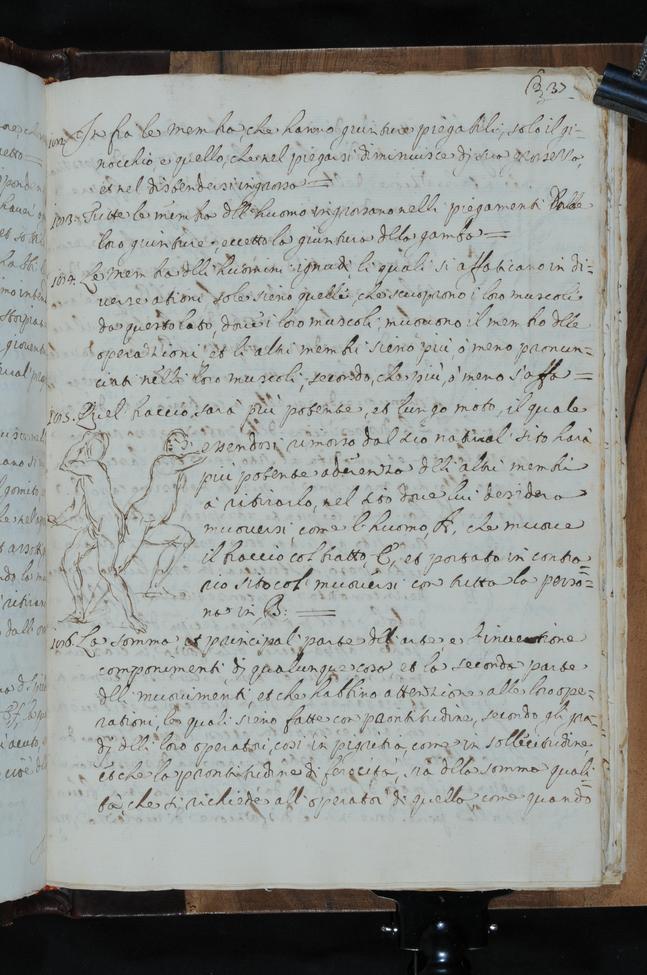 37
1012. In fra le membra che hanno giunture piegabili, solo il gi-
nocchio e quello, che nel piegarsi diminuisce di sua grossezza,
et nel distendersi ingrossa =
1013. Tutte le membra dell huomo ingrossano nelli piegamenti delle
loro giunture eccetto la giuntura della gamba =
1014. Le membra delli huomini ignudi li quali si affaticano in di-
verse ationi sole sieno quelle che scuoprono i loro muscoli
da questo lato, dove i loro muscoli muovono il membro delle
operazioni, et li altri membri sieno più, ò meno pronun-
ciati nelli loro muscoli, secondo, che più, ò meno s'affa =
1015. Quel braccio, sarà più potente, et lungo moto, il quale
essendosi rimosso dal suo natural sito harà
più potente aderenza delli altri membri
à ritirarlo, nel sito dove lui desidera
muoversi, come l'huomo, A, che muove
il braccio col tratto C, et portato in contra-
rio sito col muoversi con tutta la perso-
na in, B: =
1016. La somma et principal parte dell arte e l'inventione
componimenti di qualunque cosa, et la seconda parte
delli muovimenti, et che habbino attenzione alle loro ope-
rationi, le quali sieno fatte con prontitudine, secondo gli gra-
di delli loro operatori, così in pigritia, come in sollecitudine
et che la prontitudine di ferocità, sia della somma quali-
tà che si richiede all'operator di quella, come quando